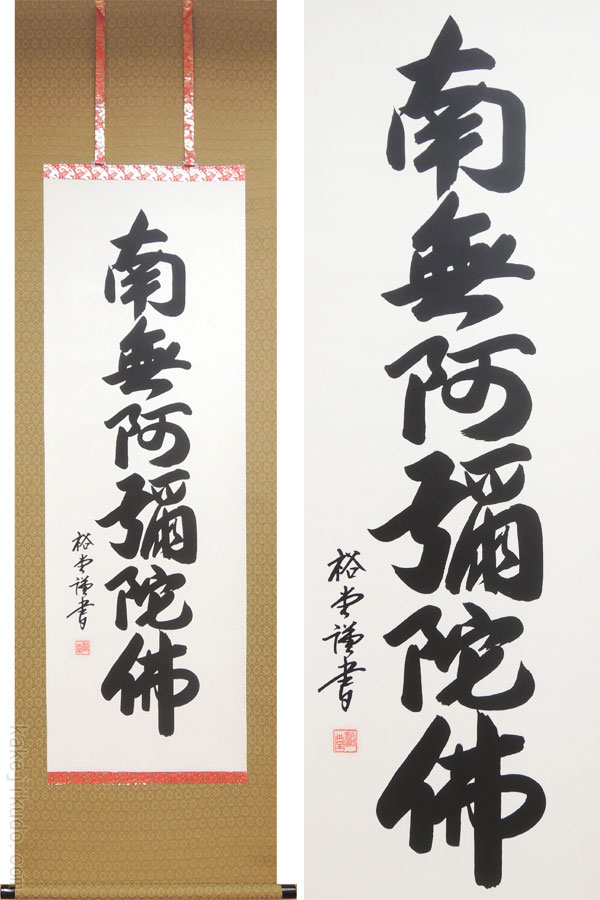 南無阿彌陀佛
裕堂謹書
南無阿彌陀佛
裕堂謹書
kakejikudo.com